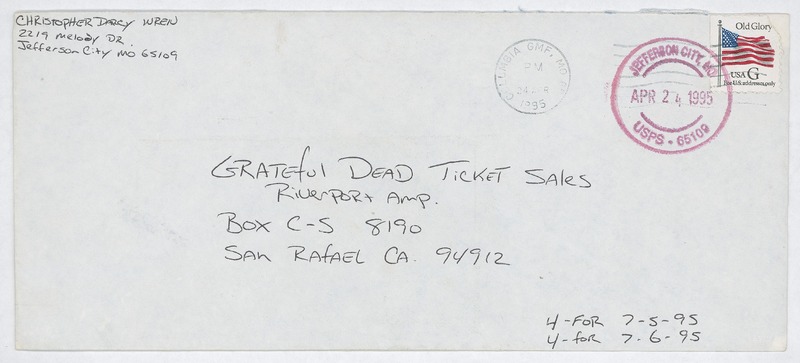 CHRISTOPHER DARCY WREN
2219 Melody DR.
Jefferson City MO 65109
COLUMBIA GMF, MO
PM
24
1995
JEFFERSON CITY, MO
APR 24 1995
USPS - 65109
Old Glory
USA G
For U.S. addresses only
GRATEFUL DEAD TICKET SALES
RIVERPORT AMP.
BOX C-S 8190
SAN RAFAEL CA. 94912
4-FOR 7-5-95
4-for 7-6-95